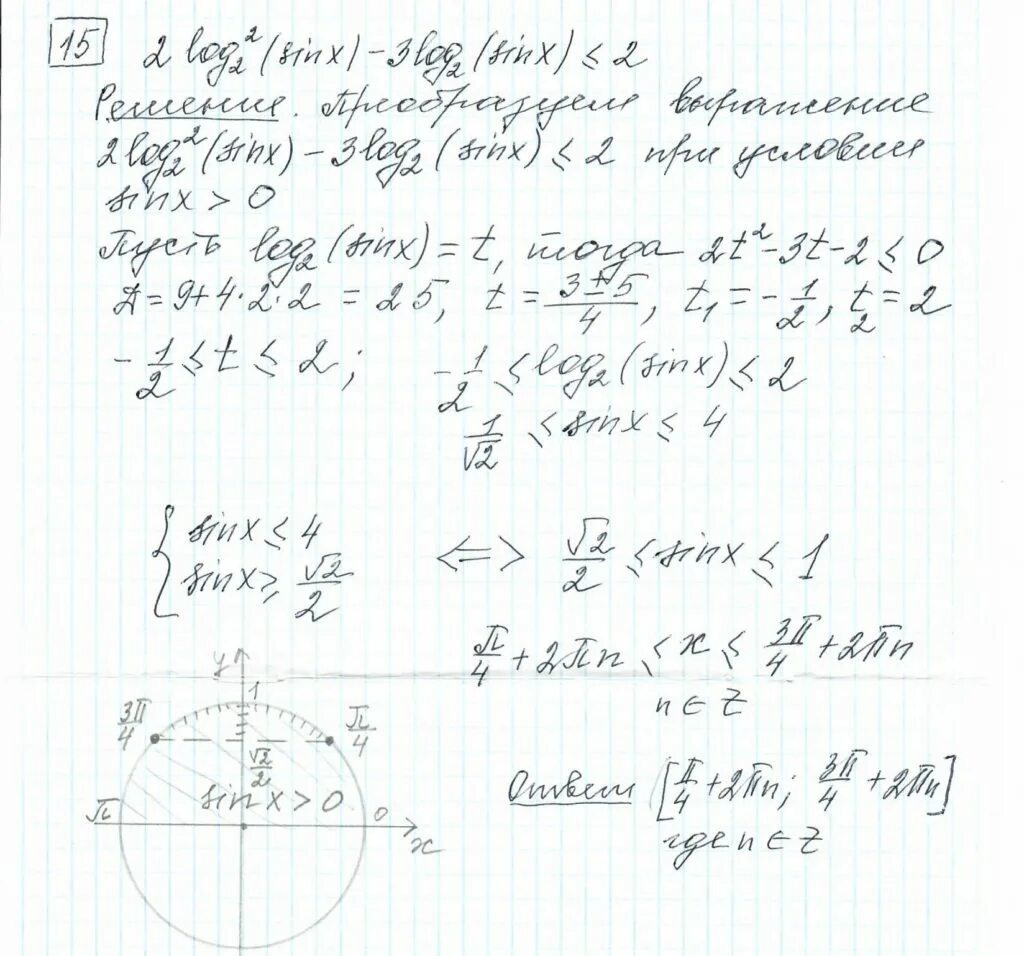 15
2 log₂²(sinx) - 3log₂(sinx) ≤ 2
Решение. Преобразуем выражение
2log₂²(sinx) - 3log₂(sinx) ≤ 2 при условии
sinx > 0
Пусть log₂(sinx) = t, тогда 2t² - 3t - 2 ≤ 0
Д = 9 + 4·2·2 = 25, t = (3±5)/4, t₁ = -1/2, t₂ = 2
-1/2 ≤ t ≤ 2; -1/2 ≤ log₂(sinx) ≤ 2
1/√2 ≤ sinx ≤ 4
{ sinx ≤ 4
sinx ≥ √2/2 <=> √2/2 ≤ sinx ≤ 1
π/4 + 2πn ≤ x ≤ 3π/4 + 2πn
n ∈ Z
y
1
3π/4 π/4
√2/2
sinx > 0
π 0
x
Ответ [π/4 + 2πn; 3π/4 + 2πn]
где n ∈ Z